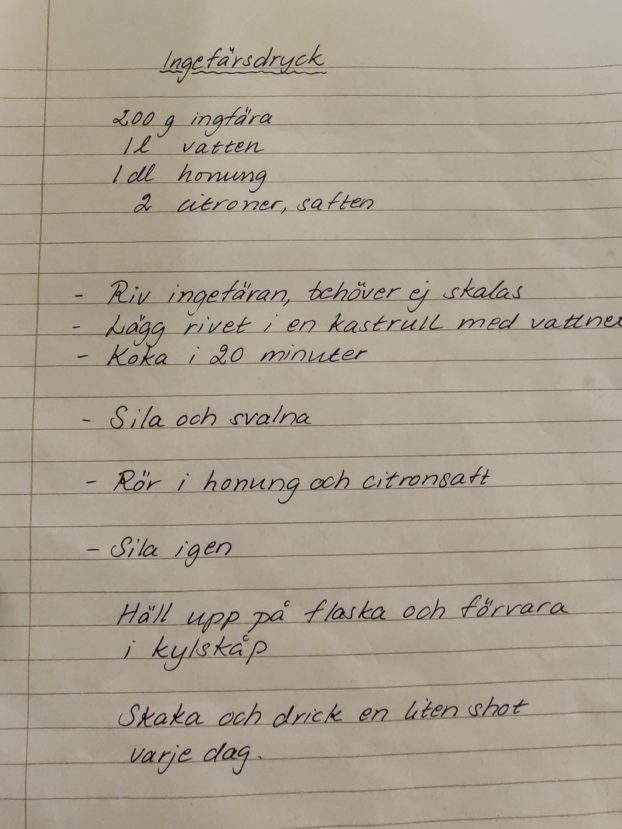 Ingefärsdryck
200 g ingfära
1 l vatten
1 dl honung
2 citroner, saften
- Riv ingefäran, behöver ej skalas
- Lägg rivet i en kastrull med vattnet
- Koka i 20 minuter
- Sila och svalna
- Rör i honung och citronsaft
- Sila igen
Häll upp på flaska och förvara
i kylskåp
Skaka och drick en liten shot
varje dag.